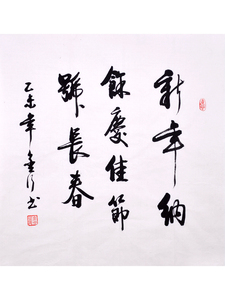 新年納
餘慶佳節
號長春
乙未年
書